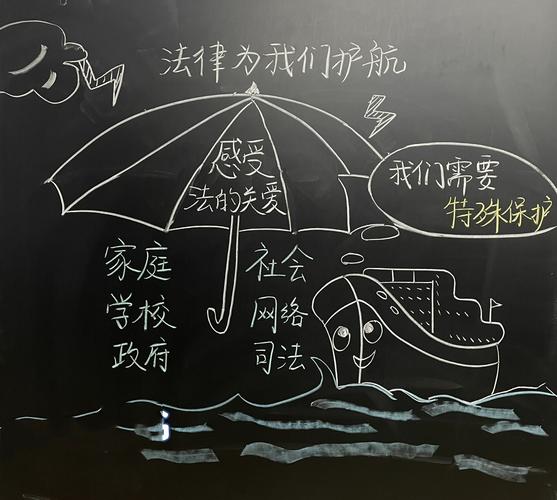 法律为我们护航
感受
法的关爱
我们需要
特殊保护
家庭
学校
政府
社会
网络
司法